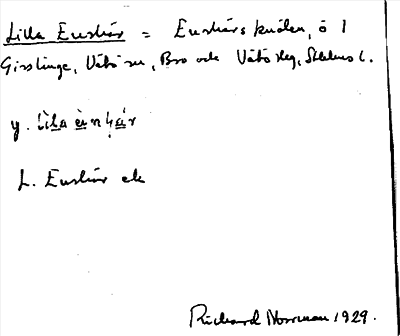 Lilla Enskär = Enskärs kuden, ö l
Gisslinge, Vätö sn, Bro och Vätö slg, Sthlms l.
y. lìla
L. Enskär ek
Richard Norrman 1929.